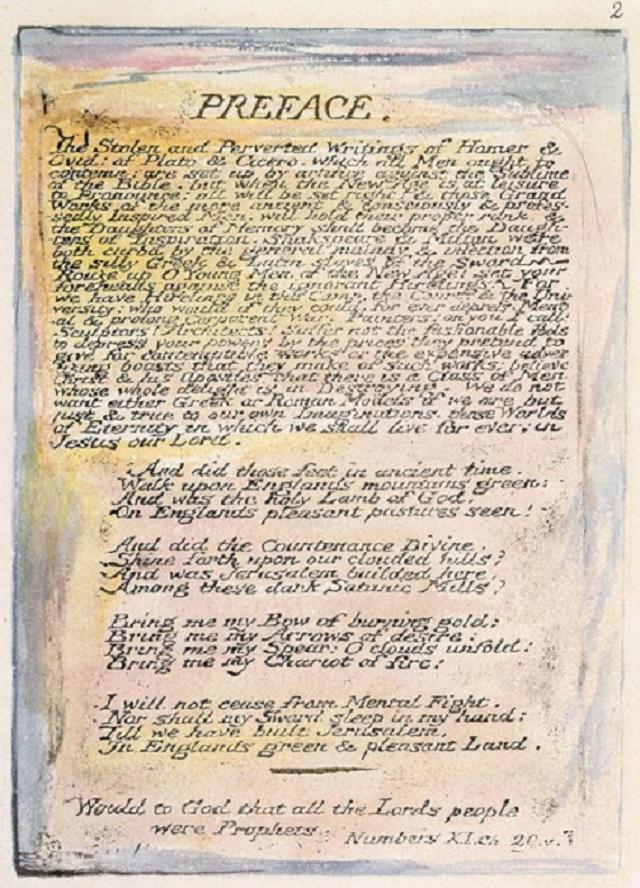 2
PREFACE.
The Stolen and Perverted Writings of Homer &
Ovid: of Plato & Cicero. which all Men ought to
contemn: are set up by artifice against the Sublime
of the Bible. but when the New Age is at leisure
to Pronounce; all will be set right: & those Grand
Works of the more ancient & consciously & profes-
sedly Inspired Men, will hold their proper rank, &
the Daughters of Memory shall become the Daugh-
ters of Inspiration. Shakspeare & Milton were
both curbd by the general malady & infection from
the silly Greek & Latin slaves of the Sword.
Rouze up O Young Men of the New Age! set your
foreheads against the ignorant Hirelings! For
we have Hirelings in the Camp, the Court & the Uni-
versity: who would if they could, for ever depress Ment-
al & prolong Corporeal War. Painters! on you I call!
Sculptors! Architects! Suffer not the fashionable Fools
to depress your powers by the prices they pretend to
give for contemptible works or the expensive adver-
tizing boasts that they make of such works; believe
Christ & his Apostles that there is a Class of Men
whose whole delight is in Destroying. We do not
want either Greek or Roman Models if we are but
just & true to our own Imaginations, those Worlds
of Eternity in which we shall live for ever; in
Jesus our Lord.
And did those feet in ancient time.
Walk upon Englands mountains green:
And was the holy Lamb of God,
On Englands pleasant pastures seen!
And did the Countenance Divine,
Shine forth upon our clouded hills?
And was Jerusalem builded here,
Among these dark Satanic Mills?
Bring me my Bow of burning gold:
Bring me my Arrows of desire:
Bring me my Spear: O clouds unfold:
Bring me my Chariot of fire:
I will not cease from Mental Fight.
Nor shall my Sword sleep in my hand:
Till we have built Jerusalem.
In Englands green & pleasant Land.
Would to God that all the Lords people
were Prophets. Numbers XI. ch 29. v.